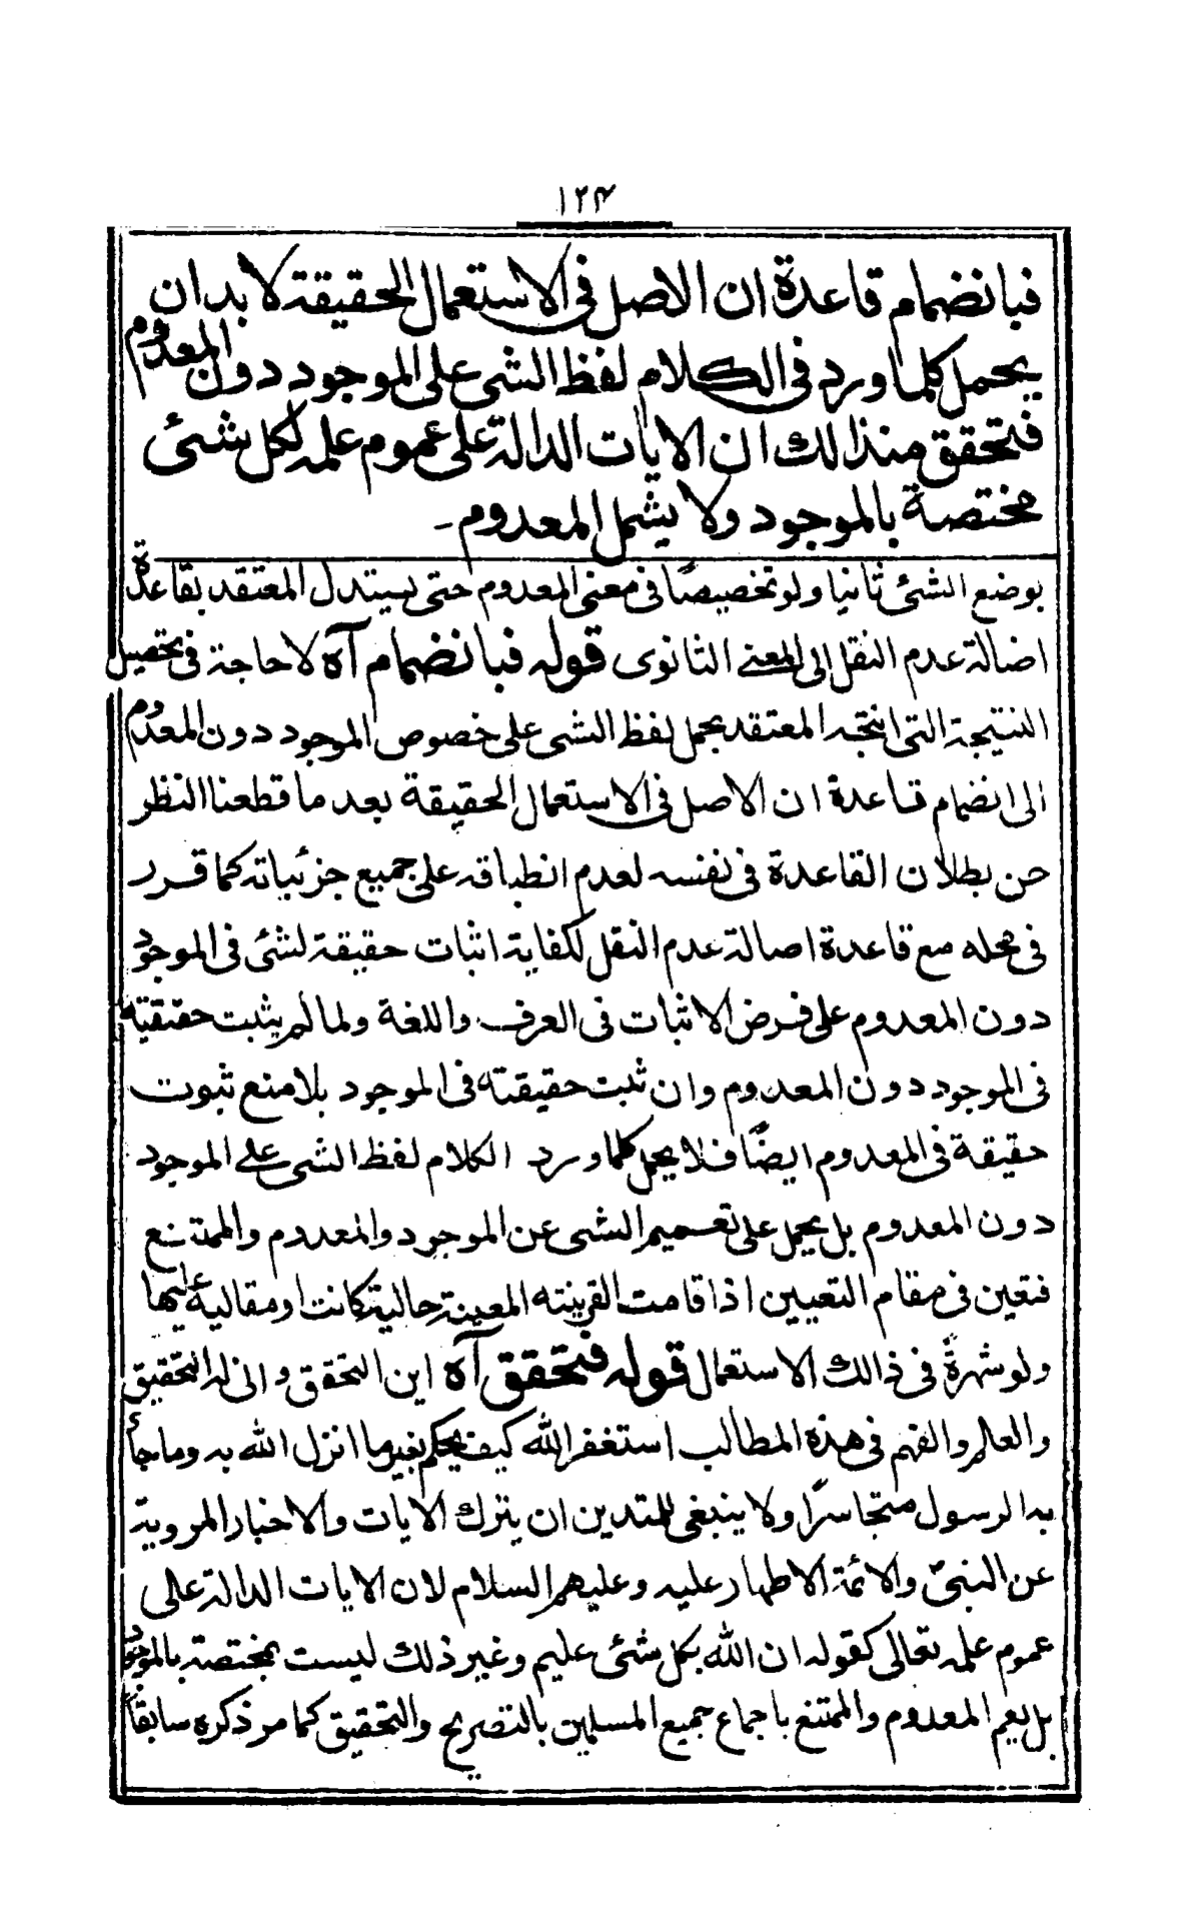 ۱۲۴
فبانضمام قاعدة ان الاصل فی الاستعمال الحقیقة لا بد ان
یحمل کلما ورد فی الکلام لفظ الشی علی الموجود دون المعدوم
فتحقق منذالك ان الایات الدالة علی عموم علمه لکل شئی
مختصة بالموجود ولا یشمل المعدوم۔
بوضع الشئی ثانیا ولو تخصیصًا فی معنی المعدوم حتی یستدل المعتقد بقاعدة
اضالة عدم النقل الی المعنی الثانوی قوله فبانضمام آه لا حاجة فی تحصیل
النتیجة التی انتجه المعتقد بحمل لفظ الشی علی خصوص الموجود دون المعدوم
الی انضمام قاعدة ان الاصل فی الاستعمال الحقیقة بعد ما قطعنا النظر
حن بطلان القاعدة فی نفسه لعدم انطباقه علی جمیع جزئیاته کما قرر
فی محله مع قاعدة اصالة عدم النقل لکفایة اثبات حقیقة لشئی فی الموجود
دون المعدوم علی فرض الاثبات فی العرف واللغة ولما لم یثبت حقیقته
فی الموجود دون المعدوم وان ثبت حقیقته فی الموجود بلا منع ثبوت
حقیقة فی المعدوم ایضًا فلا یحمل کلما ورد الکلام لفظ الشی علی الموجود
دون المعدوم بل یحمل علی تعمیم الشی عن الموجود والمعدوم والممتنع
فتعین فی مقام التعیین اذا قامت القرینته المعینة حالیة کانت او مقالیة
ولو شهرةً فی ذالك الاستعمال قوله فتحقق آه این التحقق و انی له التحقیق
والعلم والفهم فی هذه المطالب استغفر الله کیف یحکم بغیر ما انزل الله به وما جاٴ
به الرسول متجاسرًا ولا ینبغی للمتدین ان یترك الایات والاخبار المرویة
عن النبیّ والائمة الاطهار علیه وعلیهم السلام لان الایات الدالة علی
عموم علمه تعالی کقوله ان الله بکل شئی علیم وغیر ذلك لیست بمختصة بالموجود
بل یعم المعدوم والممتنع باجماع جمیع المسلمین بالتصریح والتحقیق کما مر ذکره سابقًا